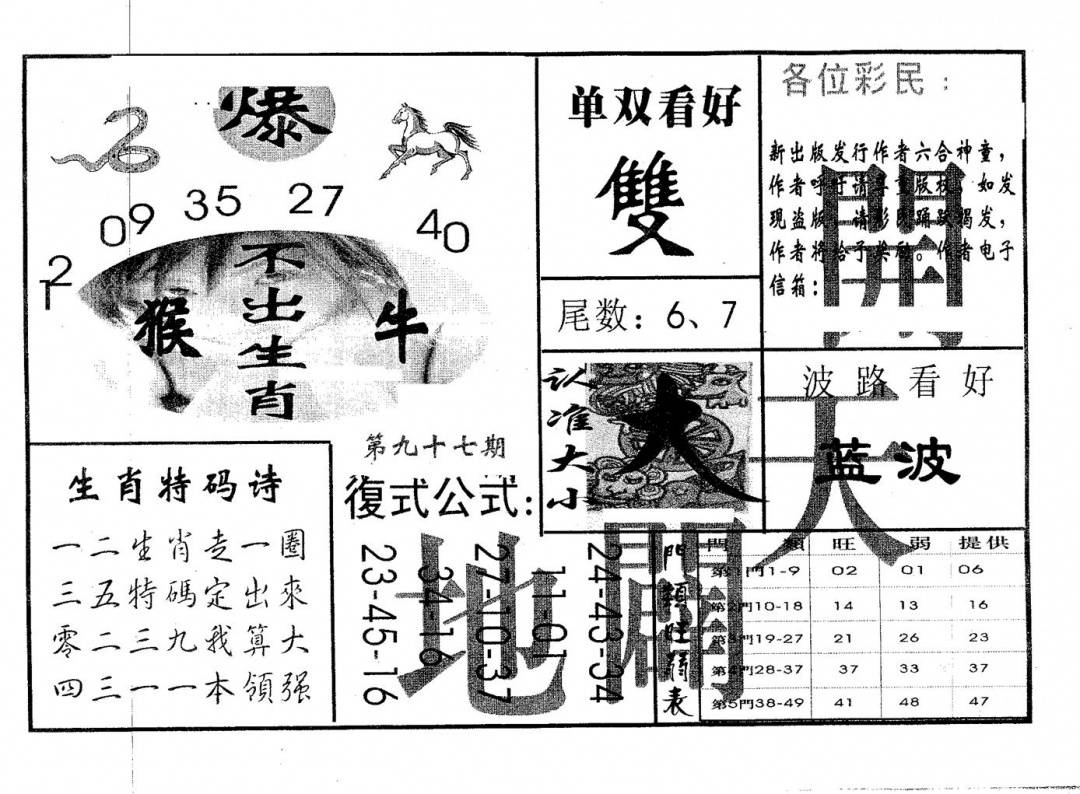 爆
09 35 27 40
12
不出生肖
猴
牛
单双看好
雙
尾数：6、7
各位彩民：
新出版发行作者六合神童，
作者呼吁请尊重版权。如发
现盗版，请彩民踊跃揭发，
作者将给予奖励。作者电子
信箱：
開
天
闢
地
认准大小
大
波路看好
蓝波
生肖特码诗
一二生肖走一圈
三五特碼定出來
零二三九我算大
四三一一本領强
第九十七期
復式公式：
23-45-16
34-16
27-10-37
11-01
24-43-34
門類旺弱表
門類 旺 弱 提供
第1門1-9 02 01 06
第2門10-18 14 13 16
第3門19-27 21 26 23
第4門28-37 37 33 37
第5門38-49 41 48 47